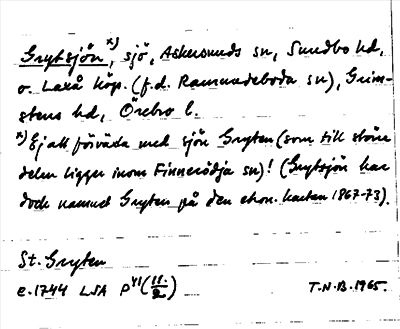 Grytsjön x), sjö, Askersunds sn, Sundbo hd,
o. Laxå köp. (f.d. Ramundeboda sn), Grim-
stens hd, Örebro l.
x) Ej att förväxla med sjön Gryten (som till större
delen ligger inom Finnerödja sn)! (Grytsjön har
dock namnet Gryten på den ekon. kartan 1867-73).
St. Gryten
c. 1744 LSA P VI (11:2)
T.N.B. 1965.